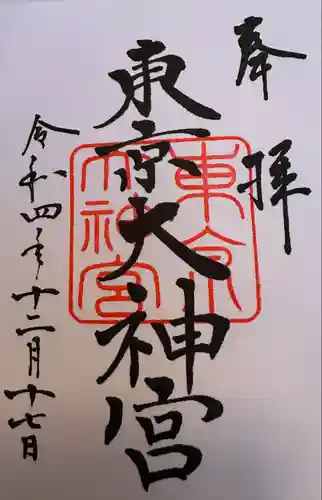 奉拝
東京大神宮
東京
大神宮
令和四年十二月十七日